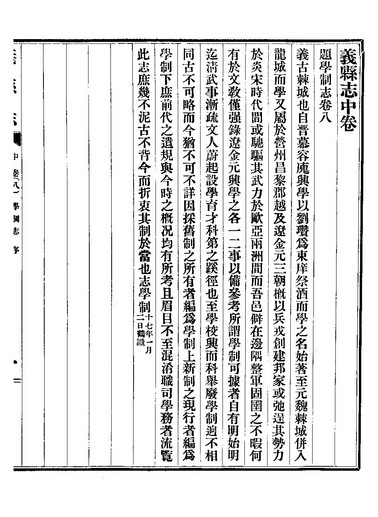 義縣志中卷
題學制志卷八
義古棘城也自晉慕容廆興學以劉瓚爲東庠祭酒而學之名始著至元魏棘城併入
龍城而學又屬於營州昌黎郡越及遼金元三朝概以兵戎創建邦家或弛逞其勢力
於炎宋時代間或馳驅其武力於歐亞兩洲間而吾邑僻在邊隅整軍固圉之不暇何
有於文敎僅强錄遼金元興學之各一二事以備參考所謂學制可據者自有明始明
迄清武事漸疏文人蔚起設學育才科第之蹊徑也至學校興而科舉廢學制逈不相
同古不可略而今猶不可不詳因採舊制之所有者編爲學制上新制之現行者編爲
學制下庶前代之遺規與今時之概况均有所考且眉目不至混淆職司學務者流覽
此志庶幾不泥古不背今而折衷其制於當也志學制十七年一月二日鶴識
義縣志
中卷八 學制志 序
一